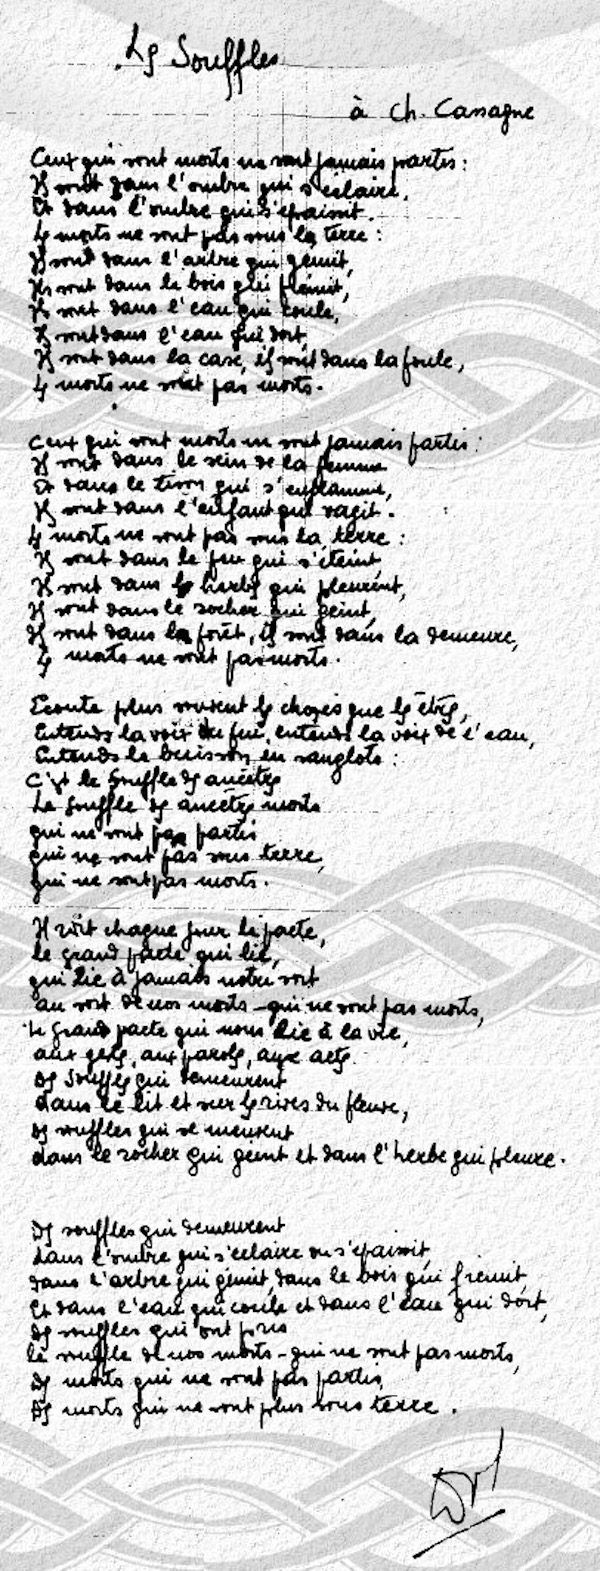 Les Souffles
à Ch. Cassagne
Ceux qui sont morts ne sont jamais partis :
Ils sont dans l'ombre qui s'eclaire,
Et dans l'ombre qui s'epaissit.
Les morts ne sont pas sous la terre :
Ils sont dans l'arbre qui gémit,
Ils sont dans le bois qui frémit,
Ils sont dans l'eau qui coule,
Ils sont dans l'eau qui dort,
Ils sont dans la case, ils sont dans la foule,
Les morts ne sont pas morts.
Ceux qui sont morts ne sont jamais partis :
Ils sont dans le sein de la femme
Et dans le tison qui s'enflamme,
Ils sont dans l'enfant qui vagit.
Les morts ne sont pas sous la terre :
Ils sont dans le feu qui s'éteint,
Ils sont dans les herbes qui pleurent,
Ils sont dans le rocher qui geint,
Ils sont dans la forêt, ils sont dans la demeure,
Les morts ne sont pas morts.
Ecoute plus souvent les choses que les êtres,
Entends la voix du feu, entends la voix de l'eau,
Entends le buisson en sanglots :
C'est le Souffle des ancêtres
Le souffle des ancêtres morts
qui ne sont pas partis
qui ne sont pas sous terre,
qui ne sont pas morts.
Il redit chaque jour le pacte,
le grand pacte qui lie,
qui lie à jamais notre sort
au sort de nos morts - qui ne sont pas morts,
le grand pacte qui nous lie à la vie,
aux gestes, aux paroles, aux actes
des souffles qui demeurent
dans le lit et sur les rives du fleuve,
des souffles qui se meuvent
dans le rocher qui geint et dans l'herbe qui pleure.
Des souffles qui demeurent
dans l'ombre qui s'eclaire ou s'epaissit,
dans l'arbre qui gémit, dans le bois qui frémit,
Et dans l'eau qui coule et dans l'eau qui dort,
des souffles qui ont pris
le souffle de nos morts - qui ne sont pas morts,
des morts qui ne sont pas partis,
Des morts qui ne sont plus sous terre.